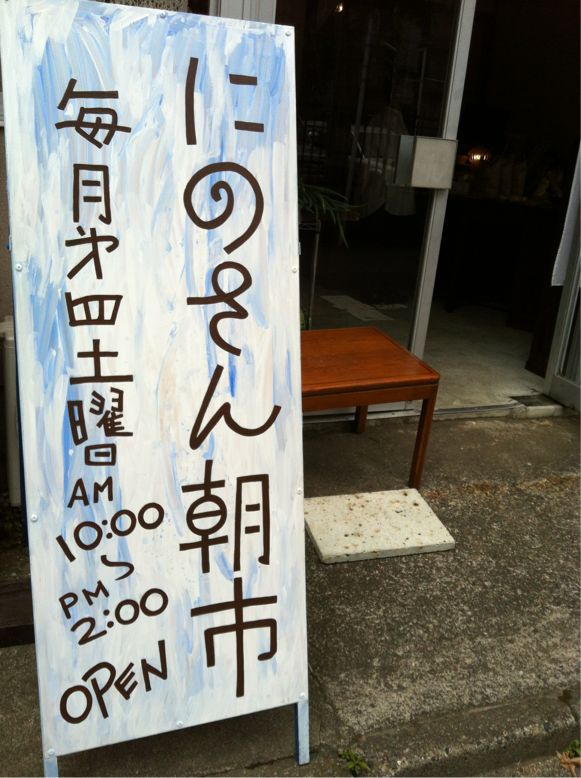 にのそん朝市
毎月第四土曜日
AM
10:00
〜
PM
2:00
OPEN